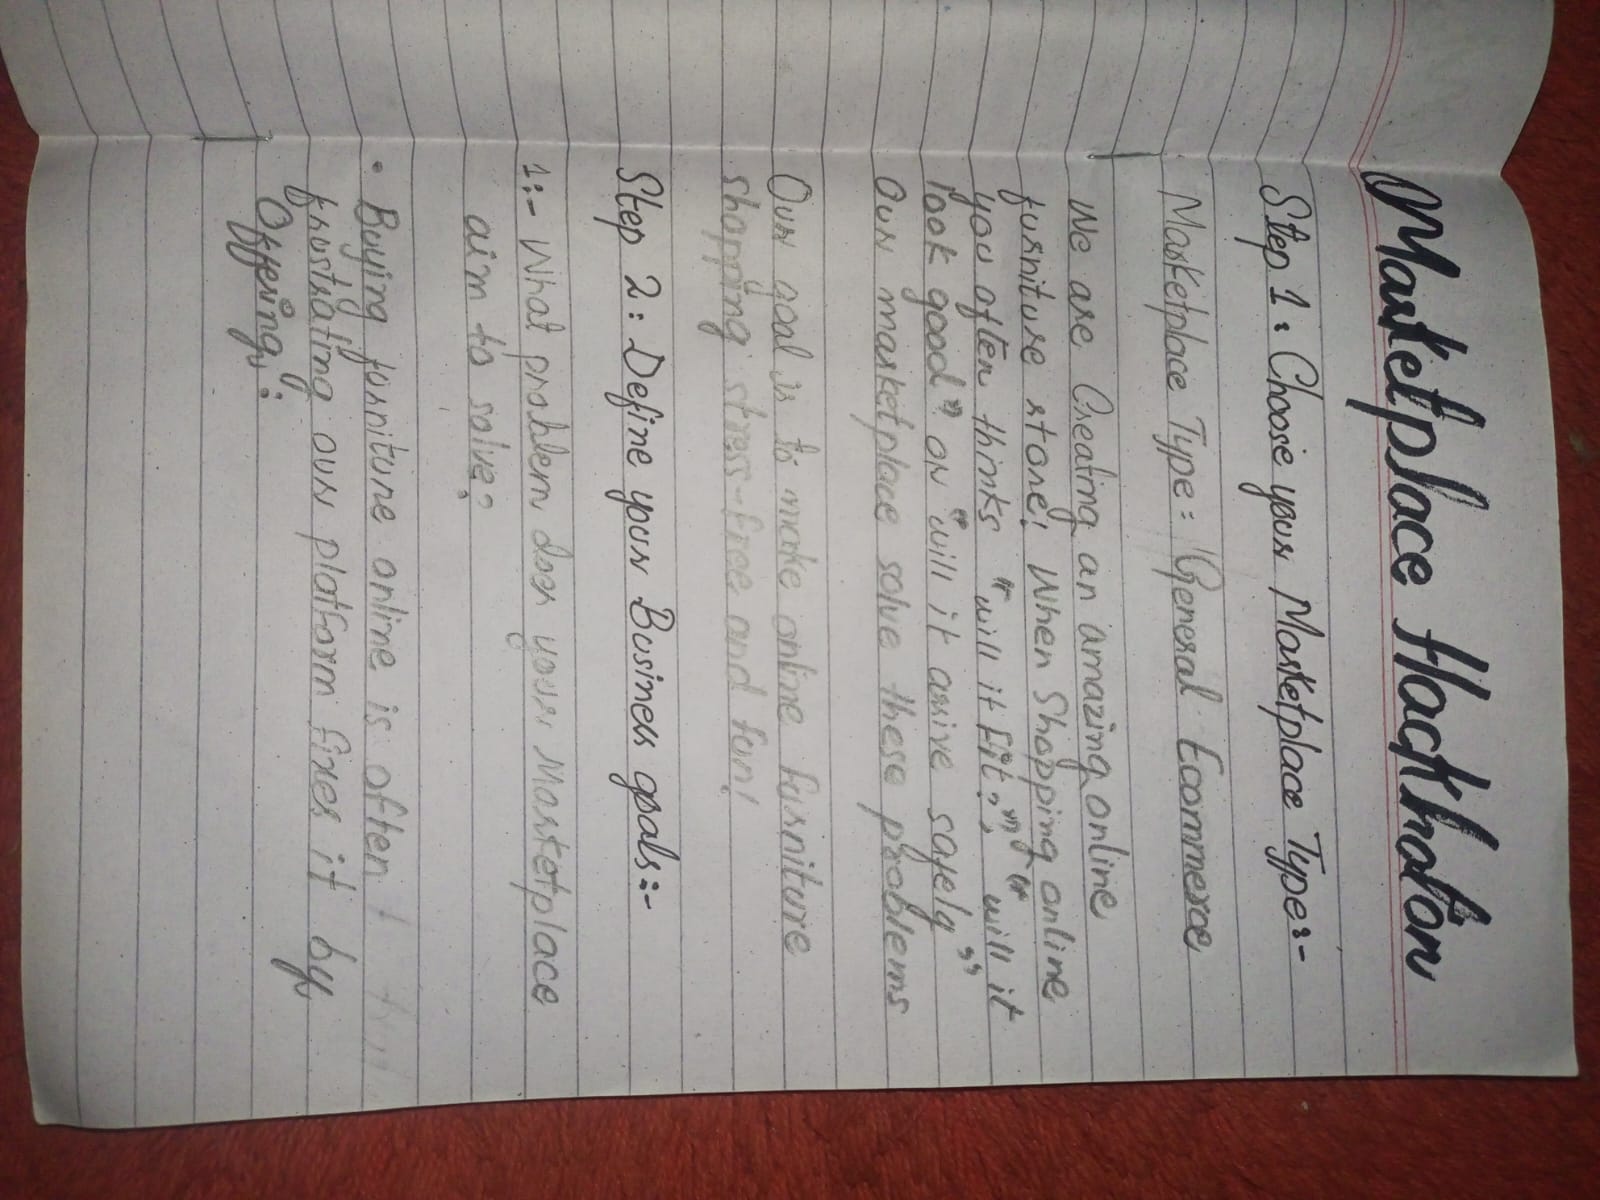 Marketplace Hackthaton
Step 1: Choose your Marketplace Type:-
Marketplace Type: General Ecommerce
We are Creating an amazing online
furniture store! When Shopping online
you often thinks "will it fit?", "will it
look good" or "will it arrive safely"
Our marketplace solve these problems
Our goal is to make online furniture
shopping stress-free and fun!
Step 2: Define your Business goals:-
1:- What problem does your Marketplace
aim to solve?
• Buying furniture online is often
frustrating our platform fixes it by
Offering: